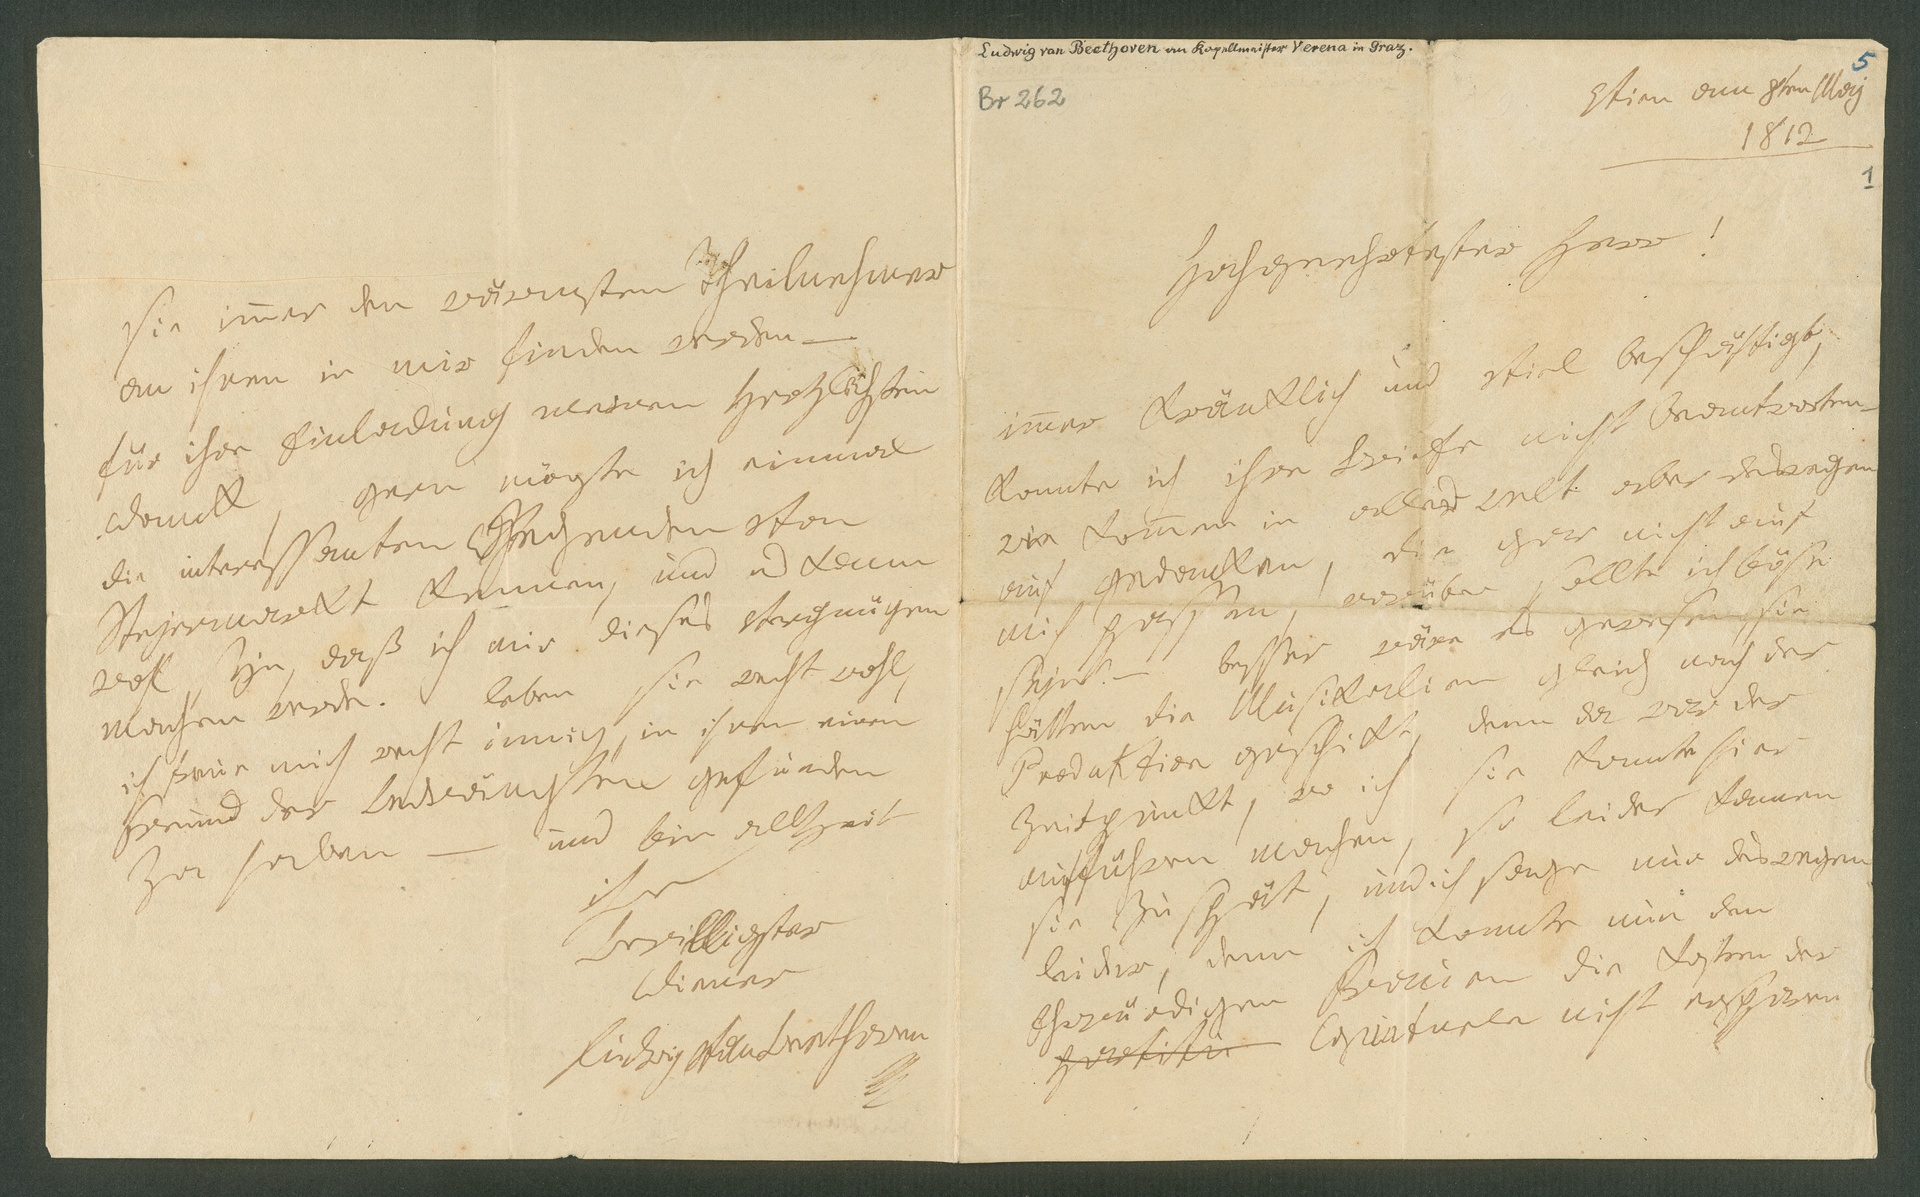 Ludwig van Beethoven an Kapellmeister Verena in Graz.
Br 262
5
Wien am 8ten May
1812
1
Hochgeehrtester Herr!
im̄er kränklich und viel beschäftigt,
konnte ich ihre Briefe nicht beantworten –
wie kom̄en in aller welt aber deswegen
auf gedanken, die gar nicht auf
mich passen, worüber sollte ich böse
sejn? — besser wäre es gewesen, sie
hätten die Musikalien gleich nach der
Produktion geschikt, denn da war der
Zeitpunkt, wo ich sie konnte hier
aufführen machen, so leider kamen
sie zu spät, und ich sage nur deswegen
leider, denn ich konnte nun den
Ehrwürdigen Frauen die Kosten der
Copiatur nicht ersparen
sie im̄er den wärmsten Theilnehmer
an ihnen in mir finden werden —
für ihre Einladung meinen Herzlichsten
dank, gern mögte ich einmal
die interessanten Gegenden von
Stejermarkt kennen, und es kann
wohl sejn, daß ich mir dieses vergnügen
machen werde. leben sie recht wohl,
ich freue mich recht innig, in ihnen einen
Freund der Bedrängten gefunden
zu haben — und bin allzeit
ihr
Bereitwilligster
diener
Ludwig van Beethoven